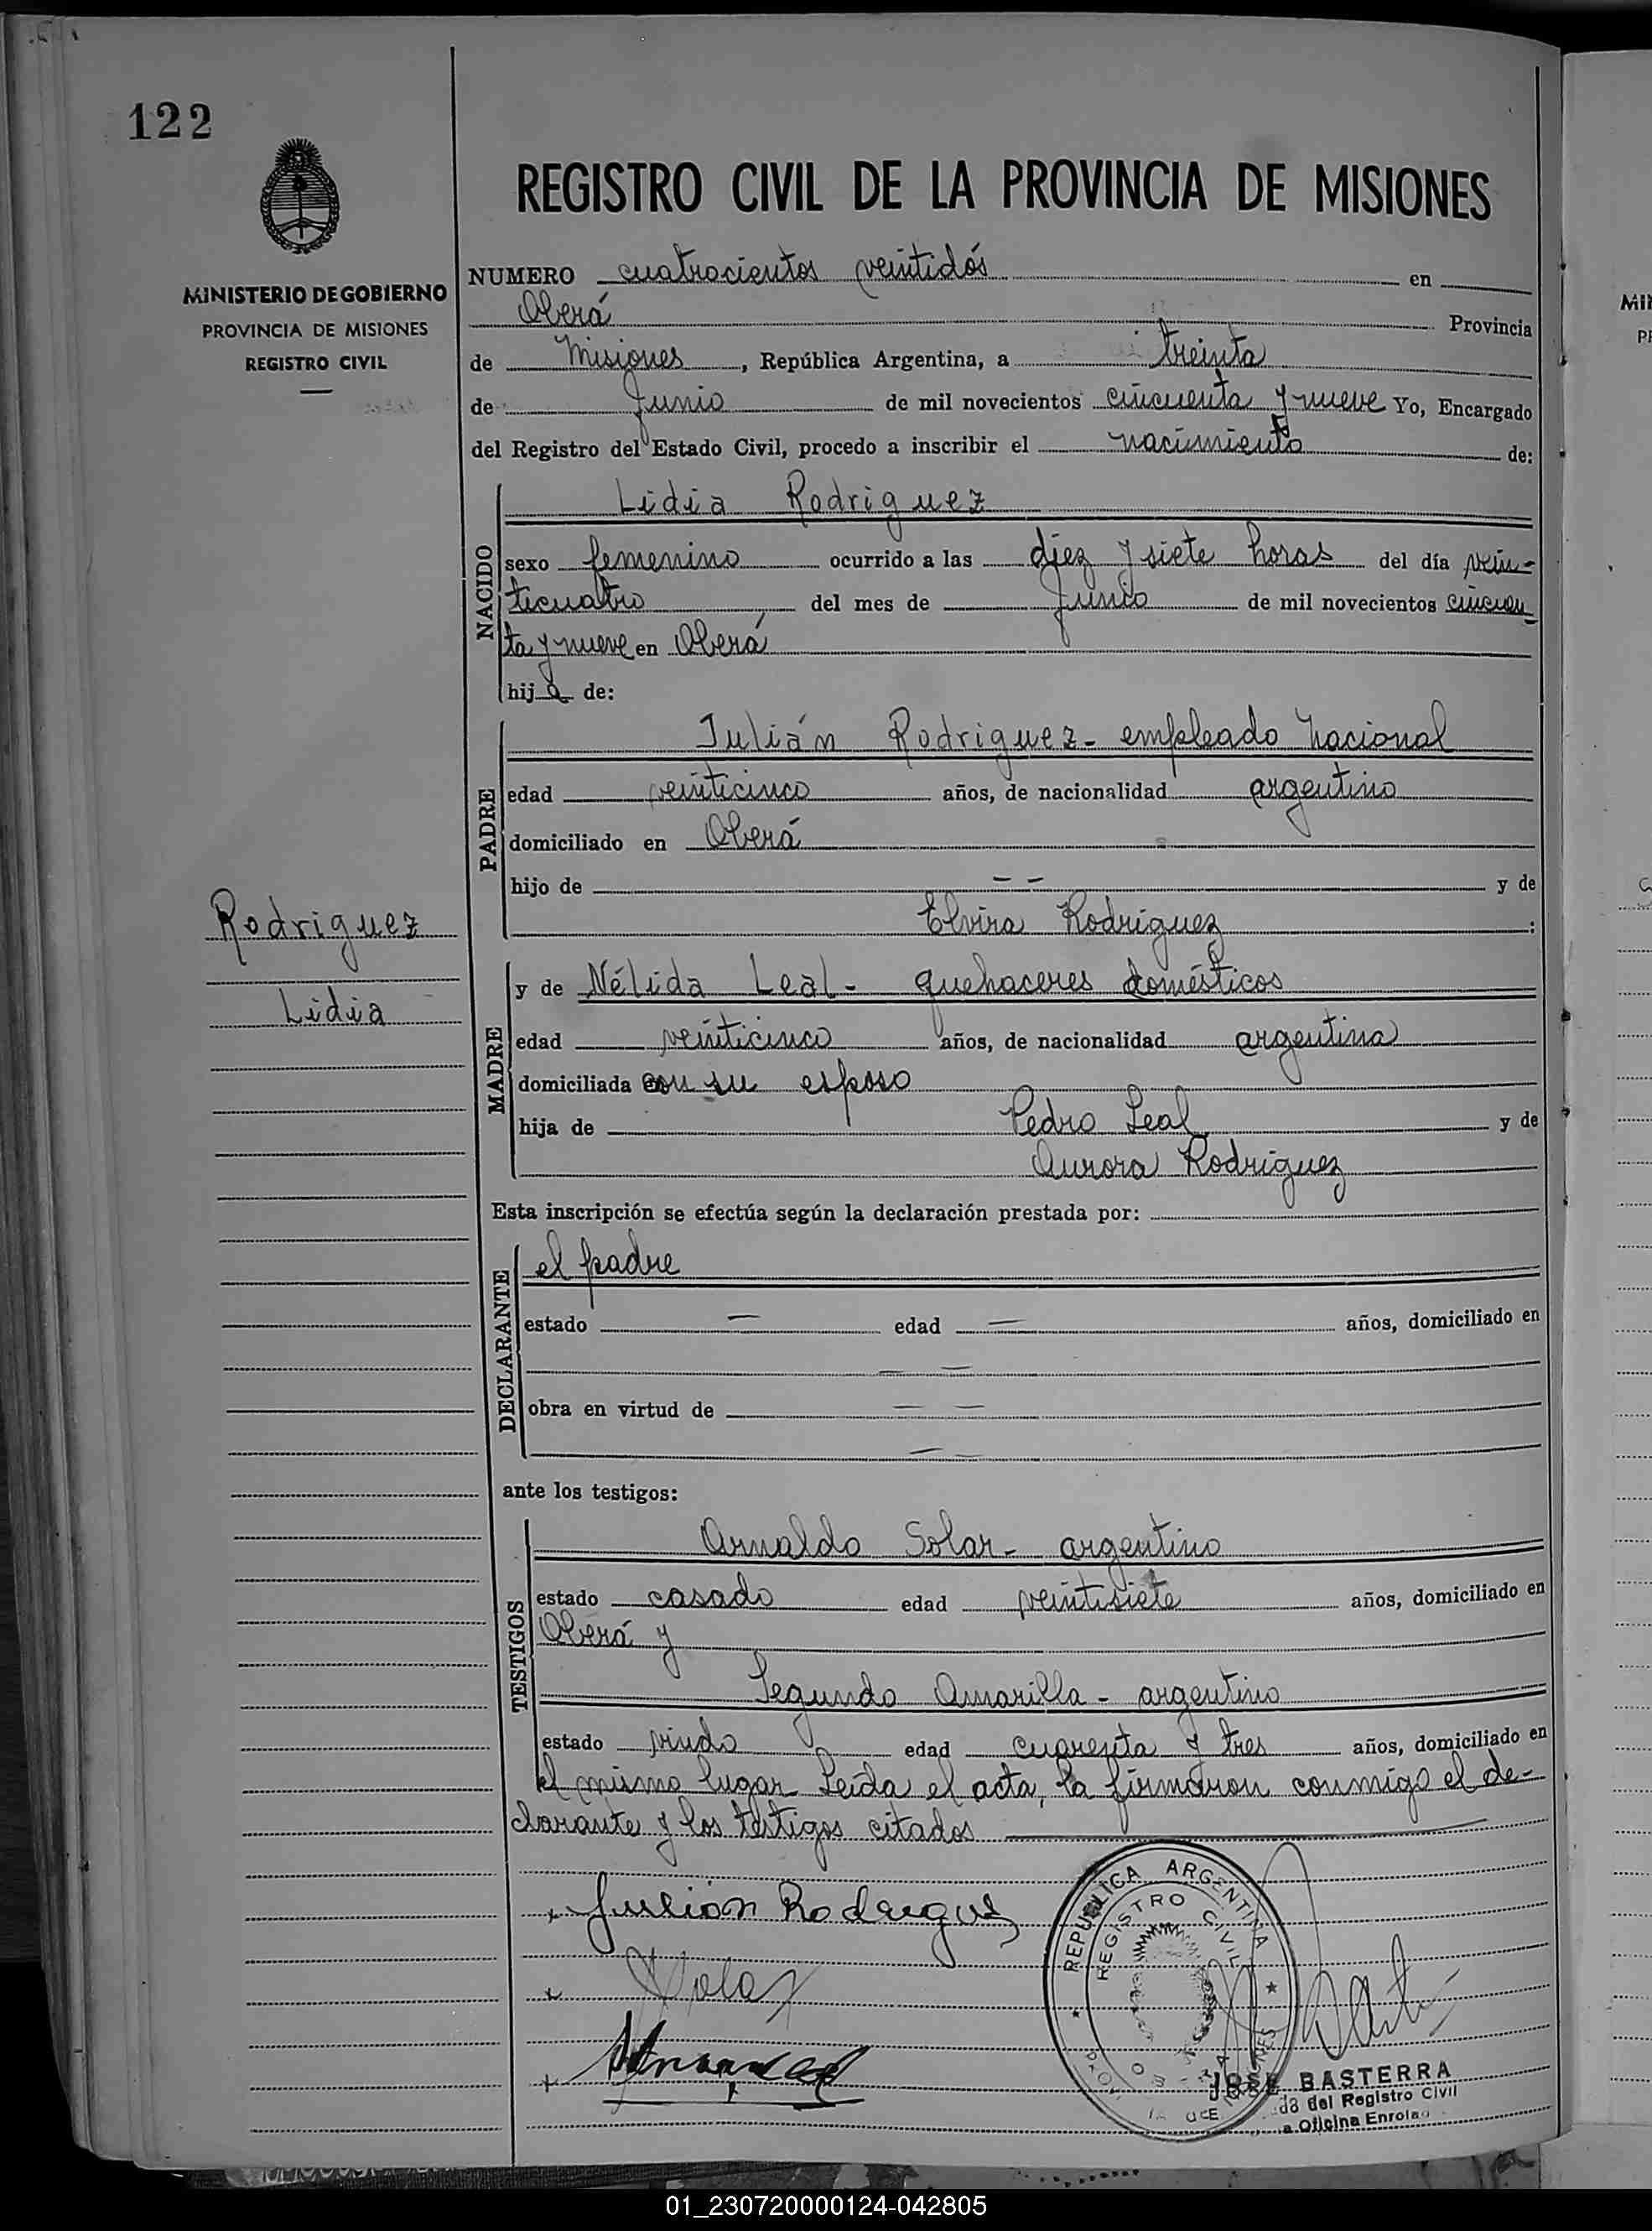 122
MINISTERIO DE GOBIERNO
PROVINCIA DE MISIONES
REGISTRO CIVIL
REGISTRO CIVIL DE LA PROVINCIA DE MISIONES
NUMERO cuatrocientos veintidós en
Oberá Provincia
de Misiones, República Argentina, a treinta
de Junio de mil novecientos cincuenta y nueve Yo, Encargado
del Registro del Estado Civil, procedo a inscribir el nacimiento de:
NACIDO
Lidia Rodriguez
sexo femenino ocurrido a las diez y siete horas del día vein-
ticuatro del mes de Junio de mil novecientos cincuen
ta y nueve en Oberá
hija de:
PADRE
Julián Rodriguez - empleado nacional
edad veinticinco años, de nacionalidad argentino
domiciliado en Oberá
hijo de — — y de
Elvira Rodriguez :
Rodriguez
Lidia
MADRE
y de Nélida Leal - quehaceres domésticos
edad veinticinco años, de nacionalidad argentina
domiciliada con su esposo
hija de Pedro Leal y de
Aurora Rodriguez
Esta inscripción se efectúa según la declaración prestada por:
DECLARANTE
el padre
estado — edad — años, domiciliado en
— —
obra en virtud de — —
— —
ante los testigos:
TESTIGOS
Arnaldo Solar - argentino
estado casado edad veintisiete años, domiciliado en
Oberá y
Segundo Amarilla - argentino
estado viudo edad cuarenta y tres años, domiciliado en
el mismo lugar Leída el acta, la firmaron conmigo el de-
clarante y los testigos citados
Julián Rodriguez
Solar
REPUBLICA ARGENTINA
REGISTRO CIVIL
JOSE BASTERRA
del Registro Civil
Oficina Enrola
01_230720000124-042805